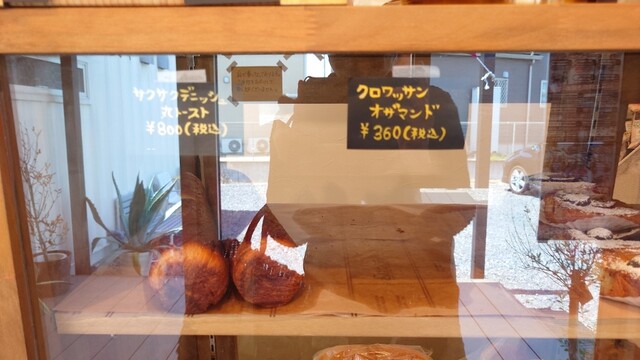 サクサクデニッシュ
丸トースト
￥800(税込)
クロワッサン
オザマンド
￥360(税込)